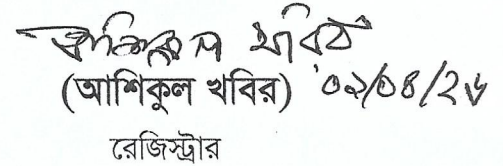 আশিকুল খবির
(আশিকুল খবির) ০২/০৪/২৬
রেজিস্ট্রার